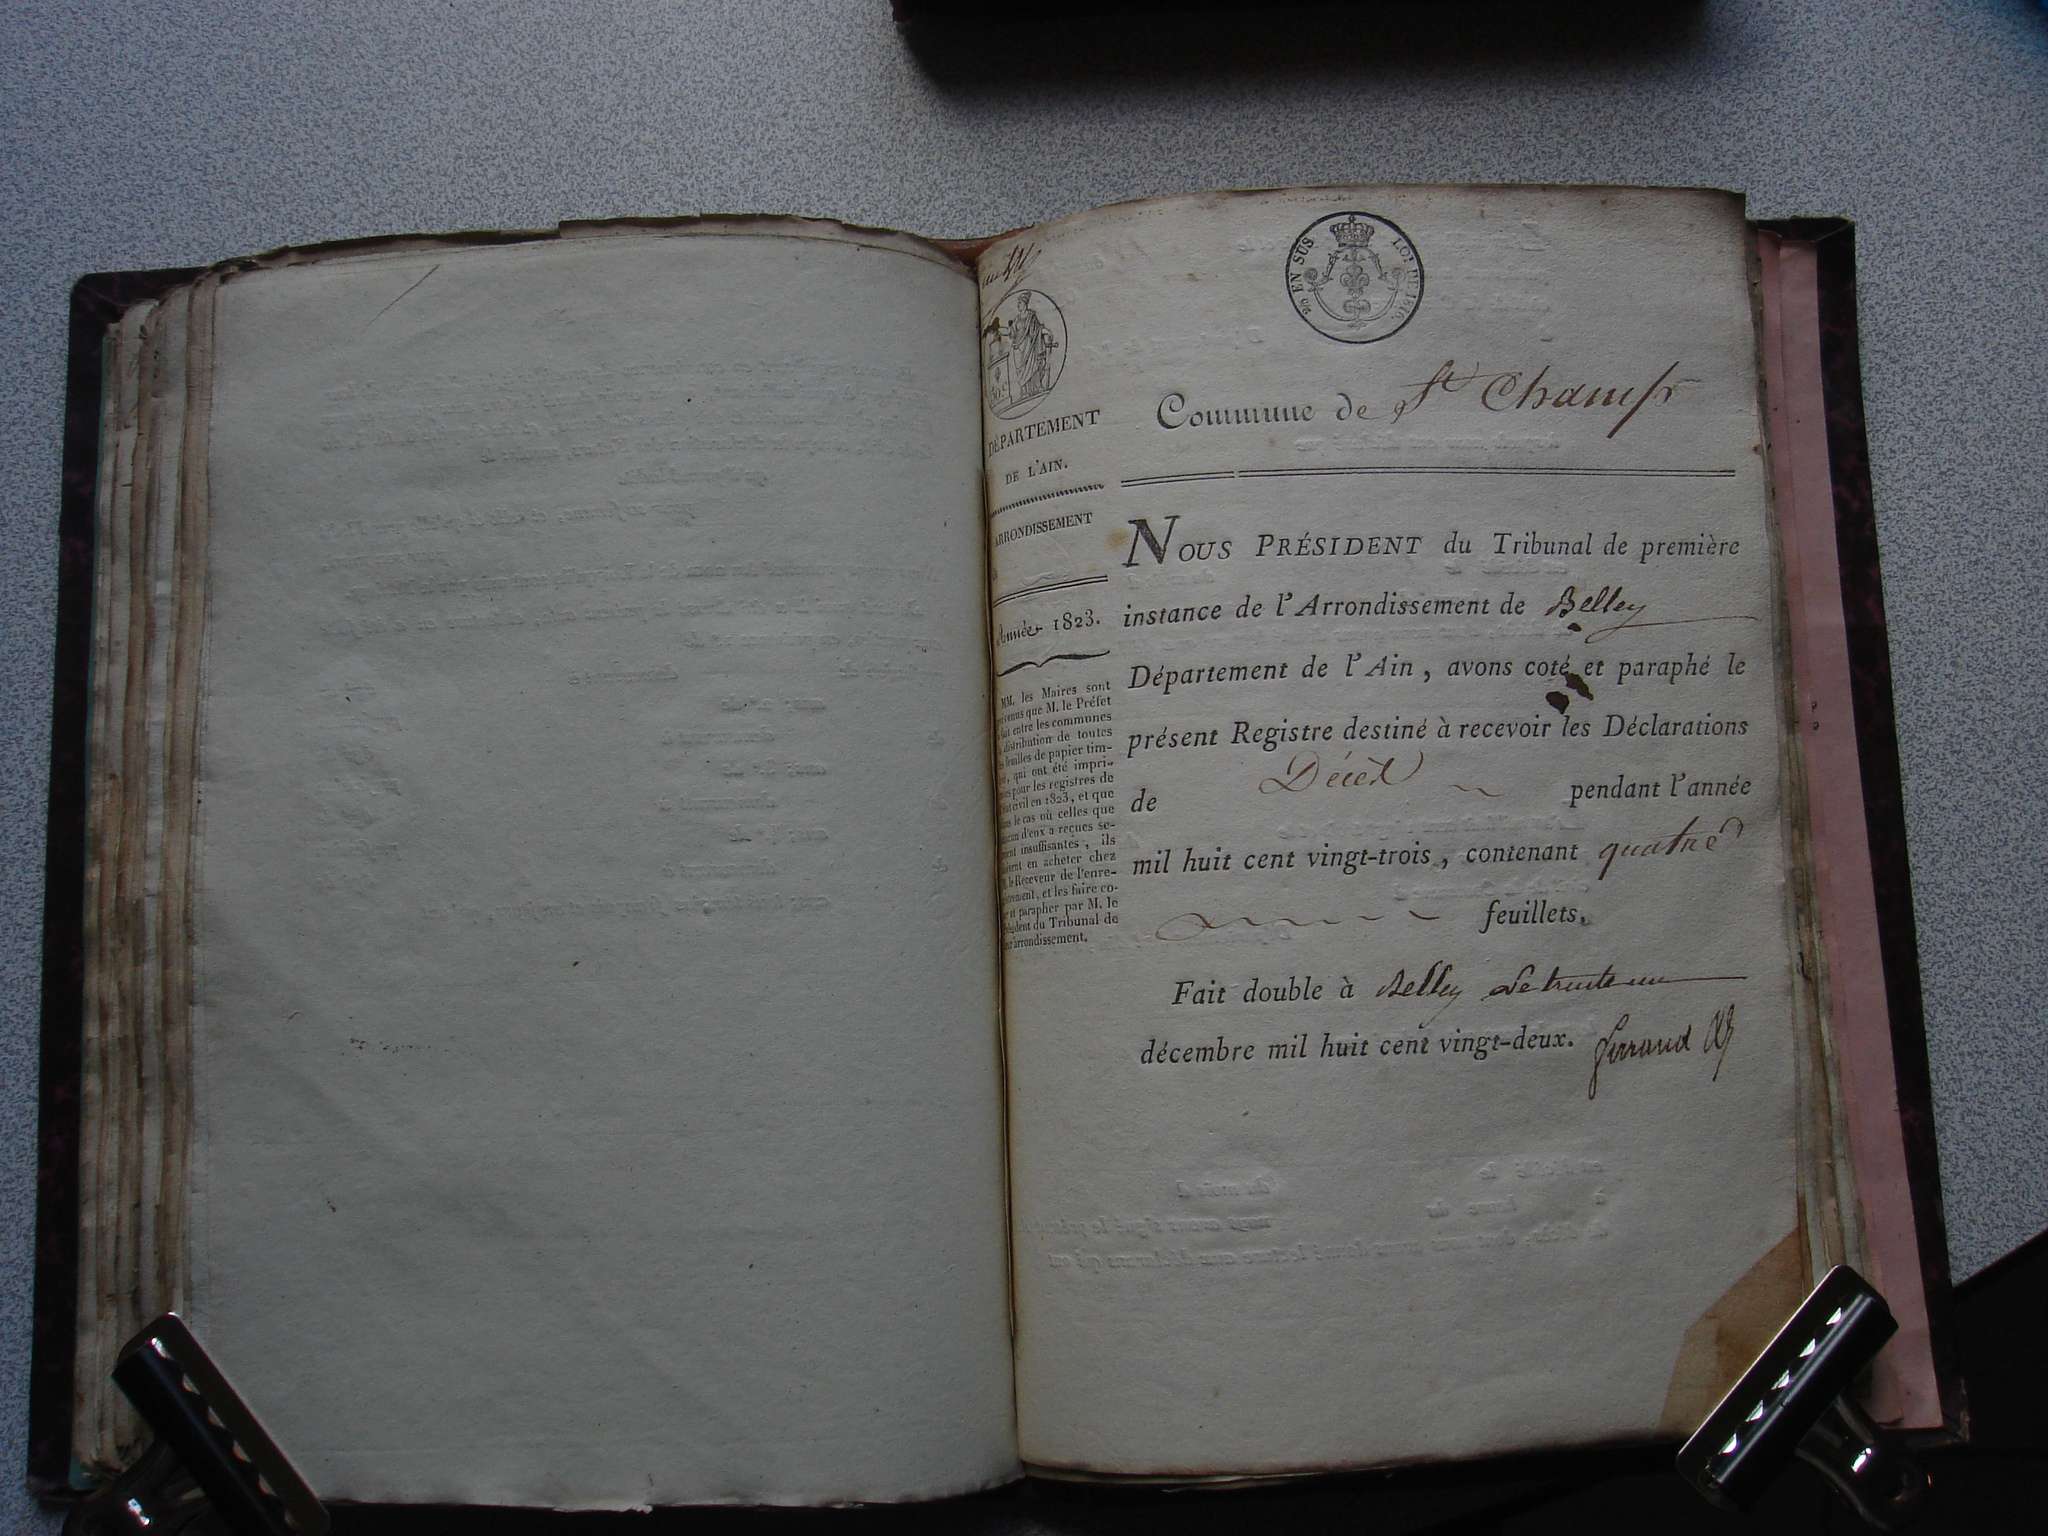 EN SUS LOI DE 1816.
DÉPARTEMENT
DE L'AIN.
ARRONDISSEMENT
Année 1823.
MM. les Maires sont
que M. le Préfet
entre les communes
distribution de toutes
feuilles de papier tim-
qui ont été impri-
pour les registres de
civil en 1823, et que
le cas où celles que
d'eux a reçues se-
insuffisantes, ils
en acheter chez
le Receveur de l'enre-
et les faire co-
et parapher par M. le
du Tribunal de
arrondissement.
Commune de St Champ
NOUS PRÉSIDENT du Tribunal de première
instance de l'Arrondissement de Belley
Département de l'Ain, avons coté et paraphé le
présent Registre destiné à recevoir les Déclarations
de Décès pendant l'année
mil huit cent vingt-trois, contenant quatre
feuillets.
Fait double à Belley Le trente un
décembre mil huit cent vingt-deux. Ferrand